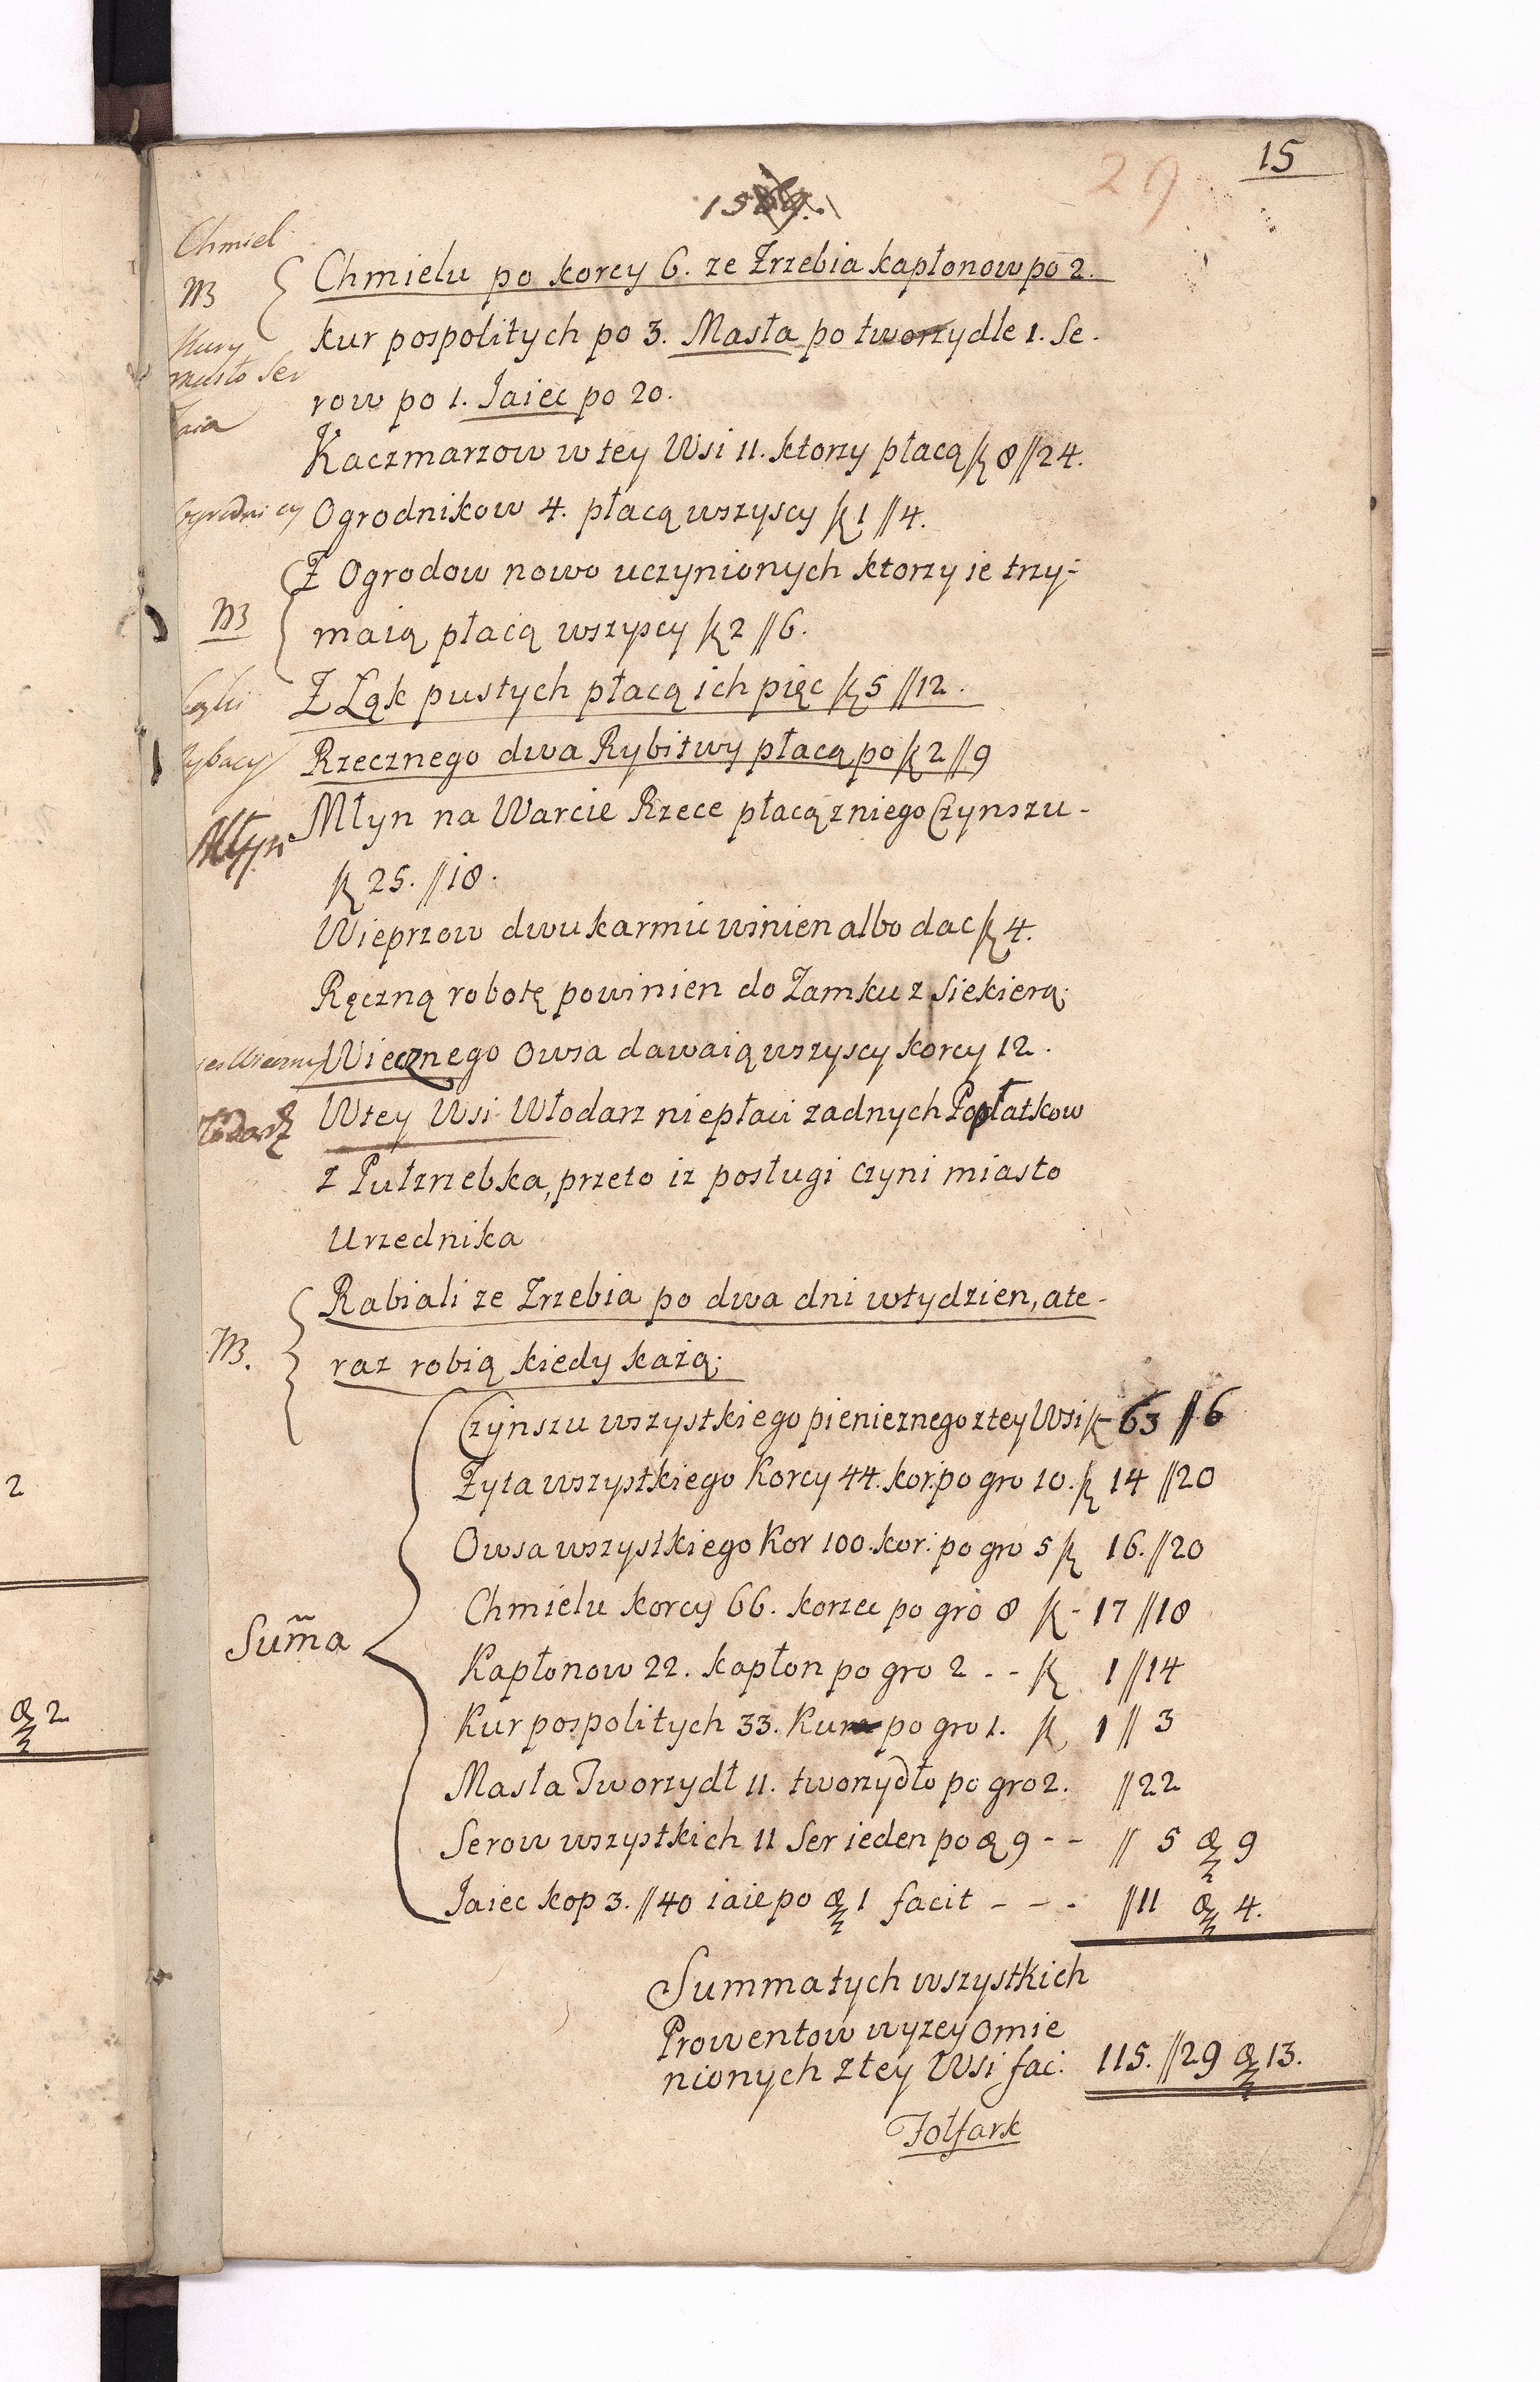 29
15
Chmiel
NB
Chmielu po korcy 6. ze Zrzebia kapłonow po 2.
Kury
kur pospolitych po 3. Masła po tworzydle 1. Se-
masło Ser
row po 1. Jaiec po 20.
Kaczmarzow w tey Wsi 11. ktorzy płacą ꝶ 8 //24.
Ogrodnicy
Ogrodnikow 4. płacą wszyscy ꝶ 1 //4.
Z Ogrodow nowo uczynionych ktorzy ie trzy-
NB
maią płacą wszyscy ꝶ 2 //6.
Z Ląk pustych płacą ich pięc ꝶ 5 //12.
Rzecznego dwa Rybitwy płacą po ꝶ 2 //9
Młyn
Młyn na Warcie Rzece płacą z niego Czynszu-
ꝶ 25. //18.
Wieprzow dwu karmic winien albo dac ꝶ 4.
Ręczną robotę powinien do Zamku z Siekierą;
Wiecznego Owsa dawaią wszyscy korcy 12.
Wtey Wsi Włodarz niepłaci zadnych Popłatkow
z Pułzrzebka, przeto iz posługi czyni miasto
Urzednika
Rabiali ze Zrzebia po dwa dni wtydzien, ate-
NB.
raz robią kiedy każą;
Czynszu wszystkiego pienieznego z tey Wsi ꝶ- 63 //6
Zyta wszystkiego Korcy 44. kor: po gro 10. ꝶ 14 //20
Owsa wszystkiego Kor 100. kor: po gro 5 ꝶ 16. //20
Chmielu korcy 66. korzec po gro 8 ꝶ - 17 //18
Sum̃a
Kapłonow 22. kapłon po gro 2 - - ꝶ 1 //14
Kur pospolitych 33. Kura po gro 1. ꝶ 1 // 3
Masła Tworzydł 11. tworzydło po gro 2. //22
Serow wszystkich 11 Ser ieden po ₰ 9 - - // 5 ₰ 9
Jaiec kop 3. //40 iaie po ₰ 1 facit - - - //11 ₰ 4.
Summa tych wszystkich
Prowentow wyzey omie
nionych z tey Wsi fac: 115. //29 ₰ 13.
Folfark
2
₰ 2